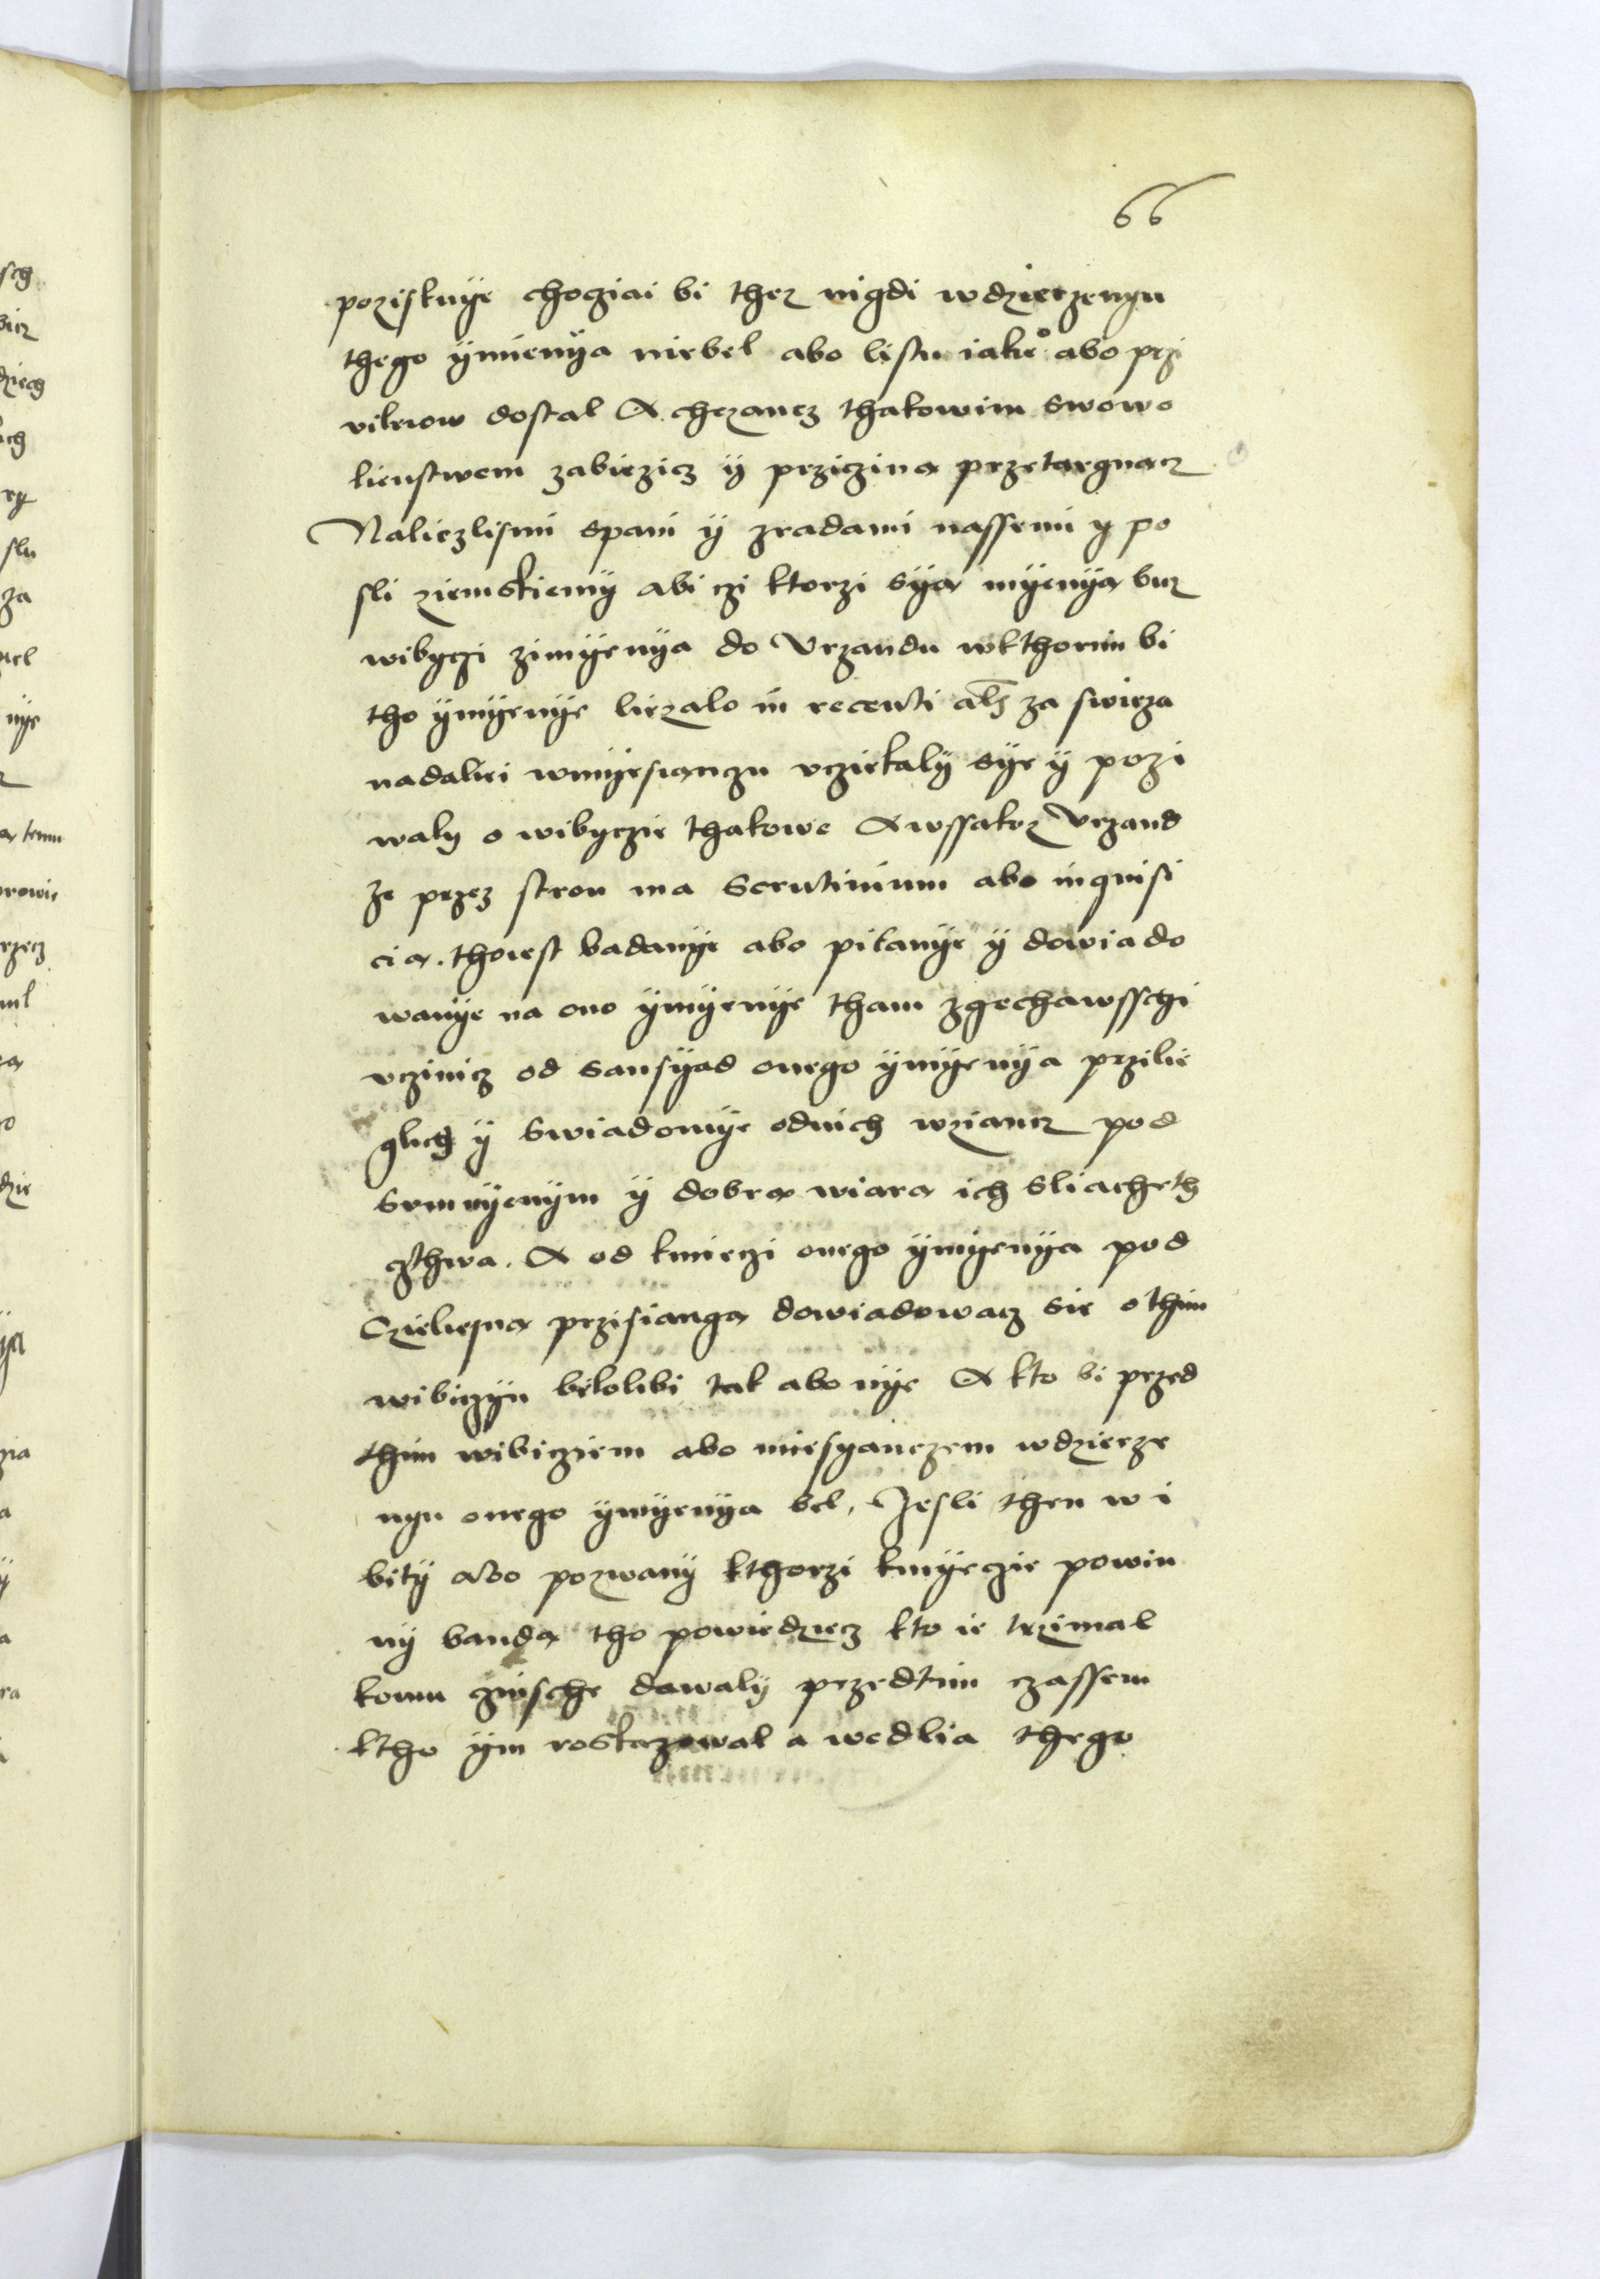 66
poziskuÿe choziai bi thez nigdi wdzierzengu
thego ÿmienÿa niebel abo listu iakieº abo pri
vileiow dostal A chczancz thakowim swowo
lienstwem zabiezicz ÿ prziczina przetargnacz
Naliezlismi spani ÿ zradami nassemi y po
sli ziemskiemÿ abi czi ktorzi sÿa mÿenÿa bicz
wibyczi zimÿenÿa do Vrzandu wkthorim bi
tho ÿmÿenÿe liezalo in recenti als za swieza
nadaliei wmÿesianczu vcziekalÿ sÿe ÿ pozi
waly o wibyczie thakowe A wssakoz Vrzand
ze przez stron ma Scrutinium abo inquisi
cia. thoiest badanÿe abo pitanÿe ÿ dowiado
wanÿe na ono ÿmÿenÿe tham zgechawsschi
vczinicz od sansÿad onego ÿmÿenÿa przilie
glich ÿ swiadomÿe odnich wziancz pod
sumnÿenÿm ÿ dobra wiara ich sliacheth
czthwa. A od kmieczi onego ÿmÿenÿa pod
Czieliesna przisianga dowiadowacz sie othim
wibiczÿu bilolibi tak abo nÿe A kto bi przed
thim wibicziem abo miesyanczem wdzierze
ngu onego ÿmÿenÿa bel, Jesli then wi
bitÿ abo pozwanÿ kthorzi kmÿeczie powin
nÿ banda tho powiedziecz kto ie trzimal
komu czinsche dawalÿ przedtim czassem
ktho ÿm roskazowal a wedlia thego